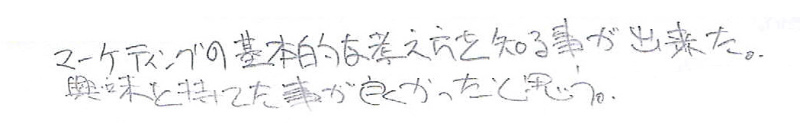 マーケティングの基本的な考え方を知る事が出来た。
興味を持てた事が良くかったと思う。